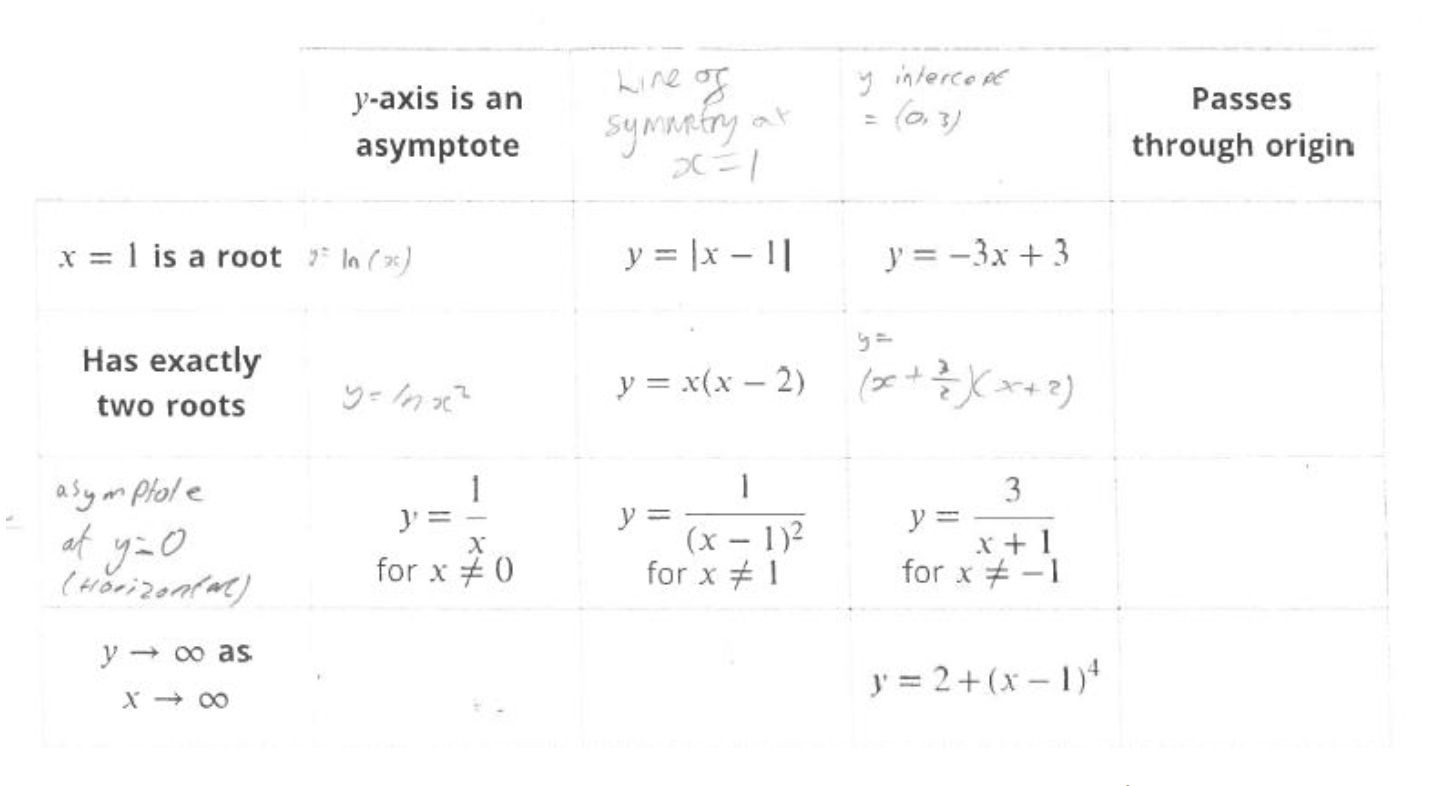 y-axis is an
asymptote
Line of
symmetry at
x = 1
y intercept
= (0, 3)
Passes
through origin
x = 1 is a root
y = ln (x)
y = |x − 1|
y = −3x + 3
Has exactly
two roots
y = ln x²
y = x(x − 2)
y =
(x + 3/2)(x + 2)
asymptote
at y = 0
(Horizontal)
y = 1/x
for x ≠ 0
y = 1/(x − 1)²
for x ≠ 1
y = 3/(x + 1)
for x ≠ −1
y → ∞ as
x → ∞
y = 2 + (x − 1)⁴